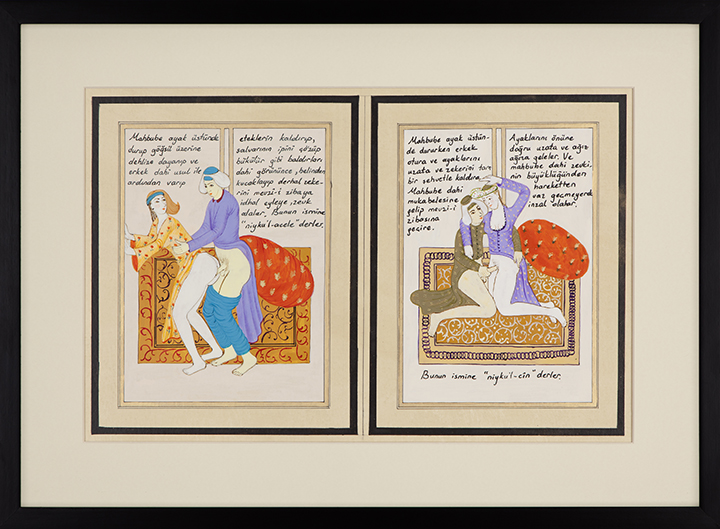 Mahbube ayak üstünde
durup göğsü üzerine
dehlize dayanıp ve
erkek dahi usul ile
ardından varıp
eteklerin kaldırıp,
şalvarının ipini çözüp
bükülür gibi baldırları
dahi görününce, belinden
kucaklayıp derhal zeke-
rini mevzi-i zibaya
idhal eyleye, zevk
alalar. Bunun ismine
"niykü'l-acele" derler.
Mahbube ayak üstün-
de dururken erkek
otura ve ayaklarını
uzata ve zekerini tam
bir şehvetle kaldıra.
Mahbube dahi
mukabelesine
gelip mevzi-i
zibasına
geçire.
Ayaklarını önüne
doğru uzata ve ağız
ağıza geleler. Ve
mahbube dahi zevki-
nin büyüklüğünden
hareketten
vaz geçmeyerek
inzal olalar.
Bunun ismine "niykü'l-cin" derler.